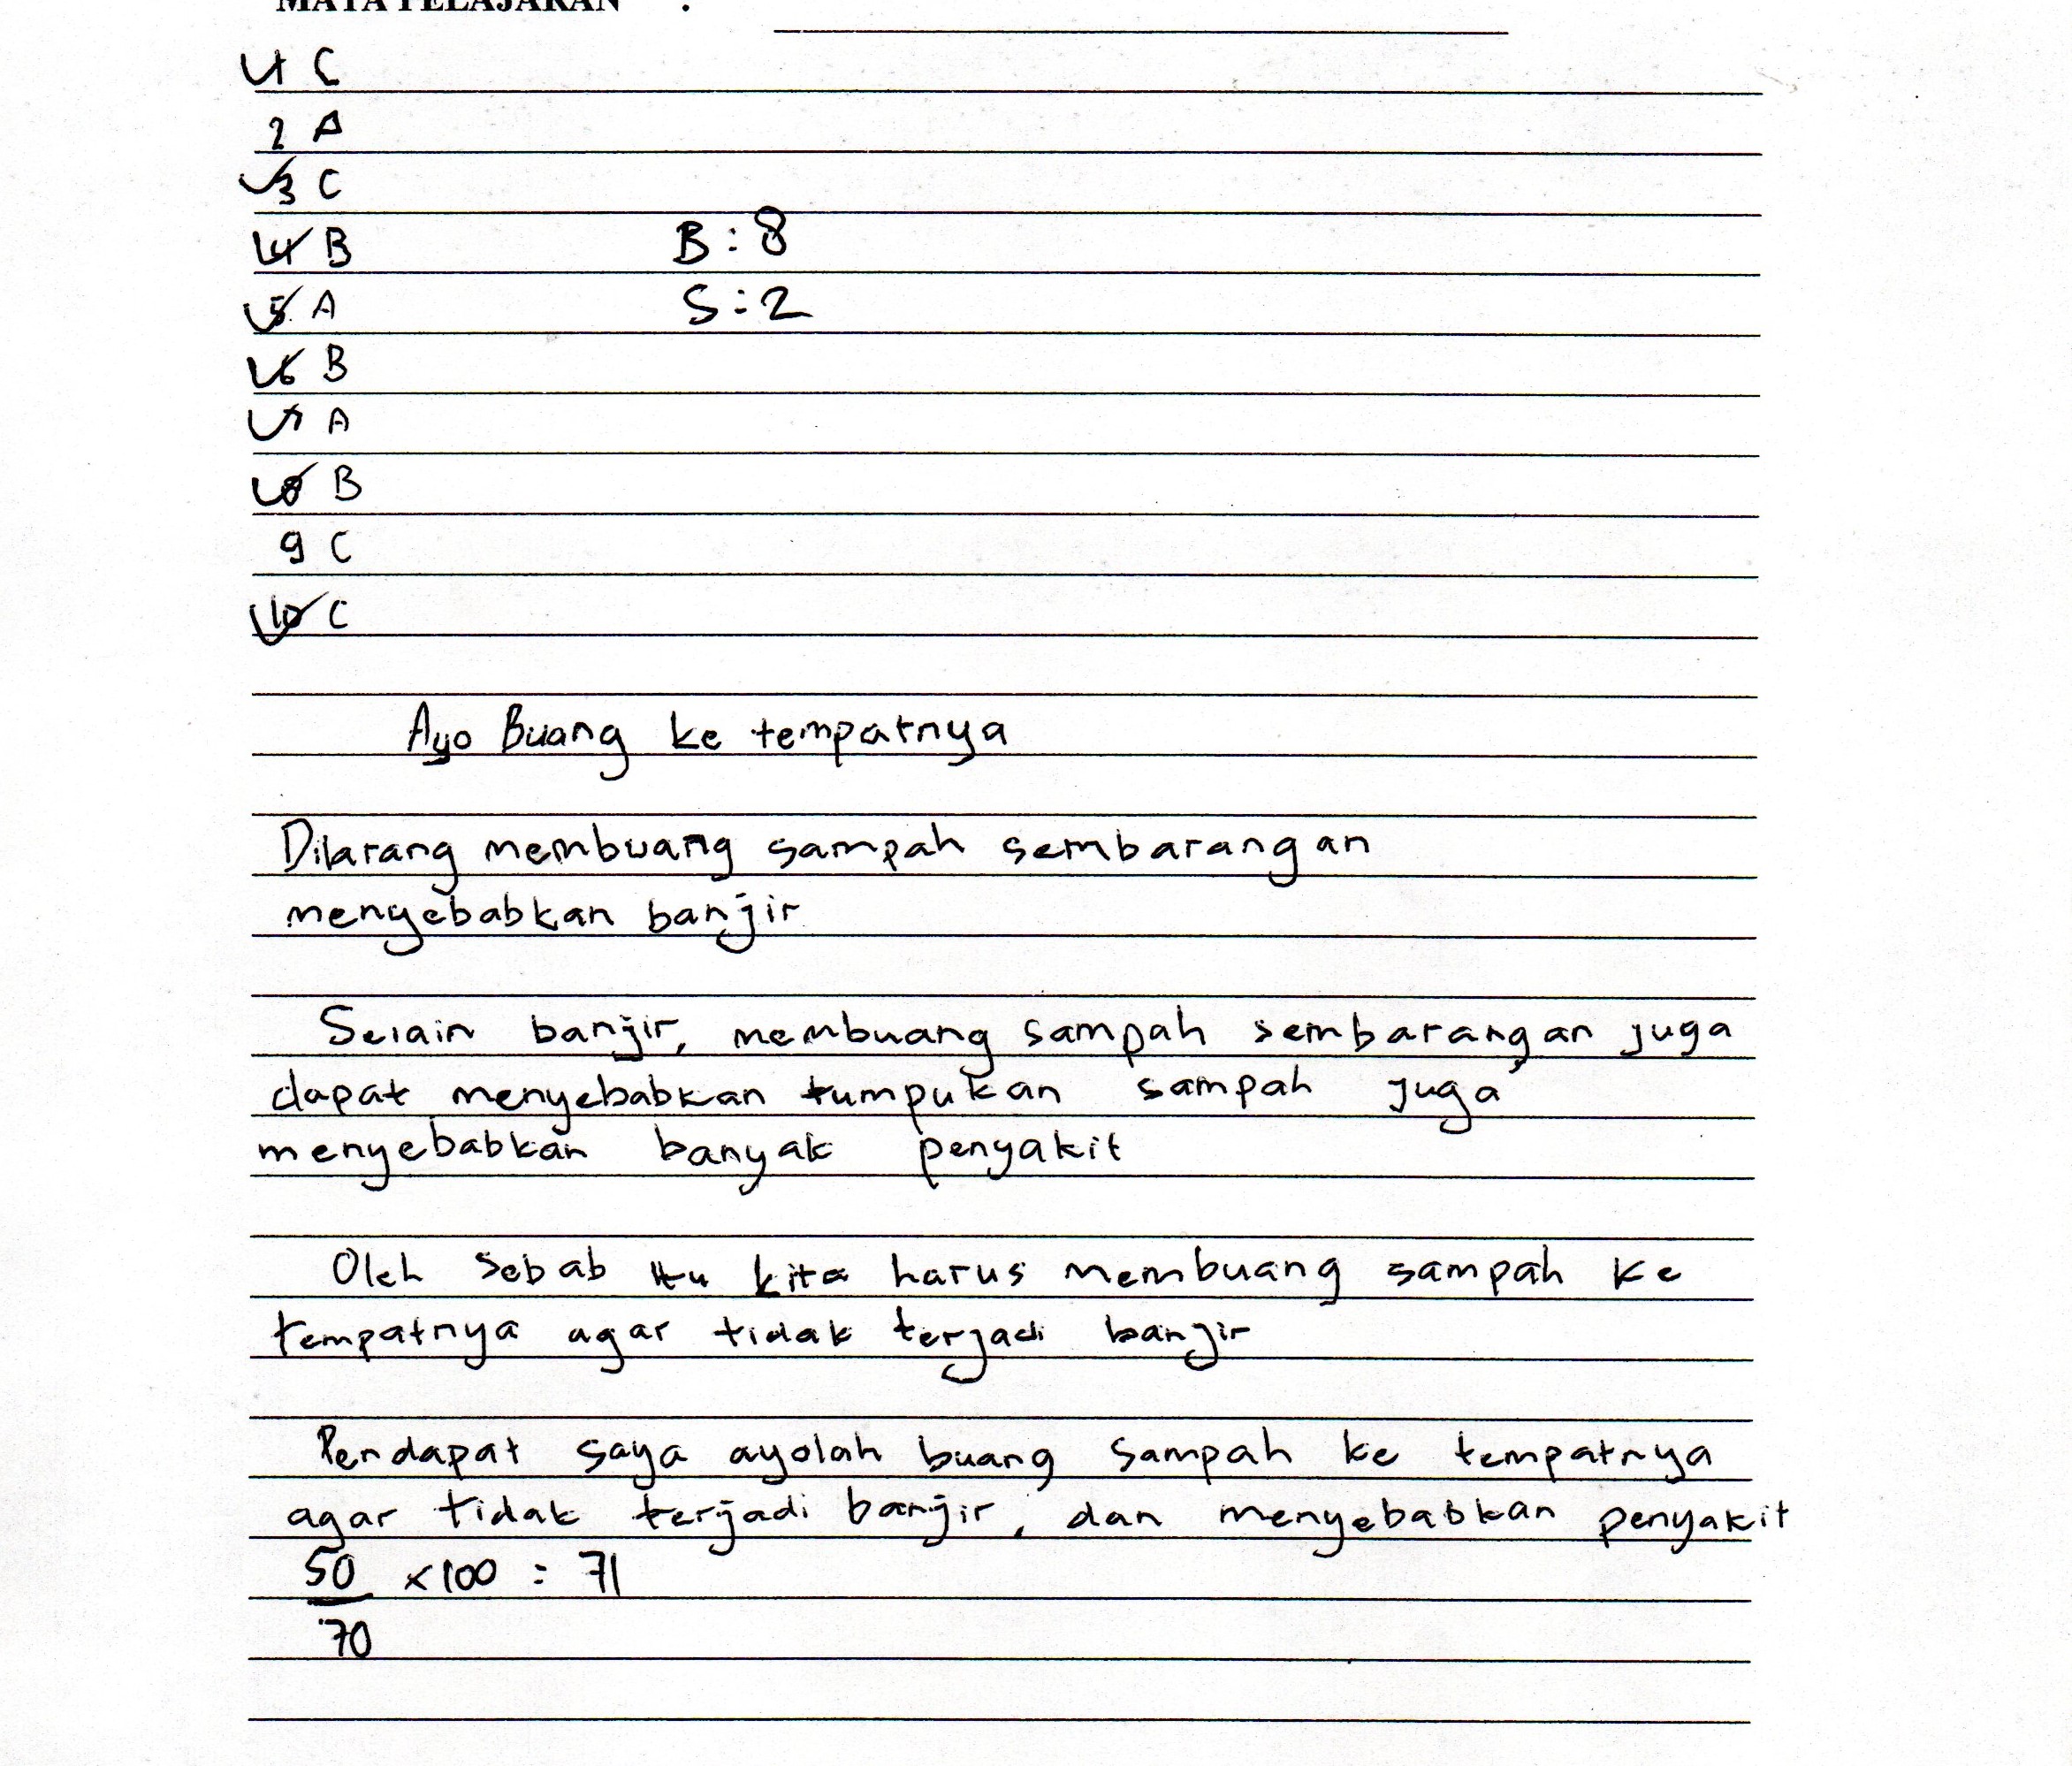 MATA PELAJARAN :
1 C
2 A
3 C
4 B B : 8
5 A S : 2
6 B
7 A
8 B
9 C
10 C
Ayo Buang ke tempatnya
Dilarang membuang sampah sembarangan
menyebabkan banjir
Selain banjir, membuang sampah sembarangan juga
dapat menyebabkan tumpukan sampah juga
menyebabkan banyak penyakit
Oleh sebab itu kita harus membuang sampah ke
tempatnya agar tidak terjadi banjir
Pendapat saya ayolah buang sampah ke tempatnya
agar tidak terjadi banjir, dan menyebabkan penyakit
50 x100 = 71
70